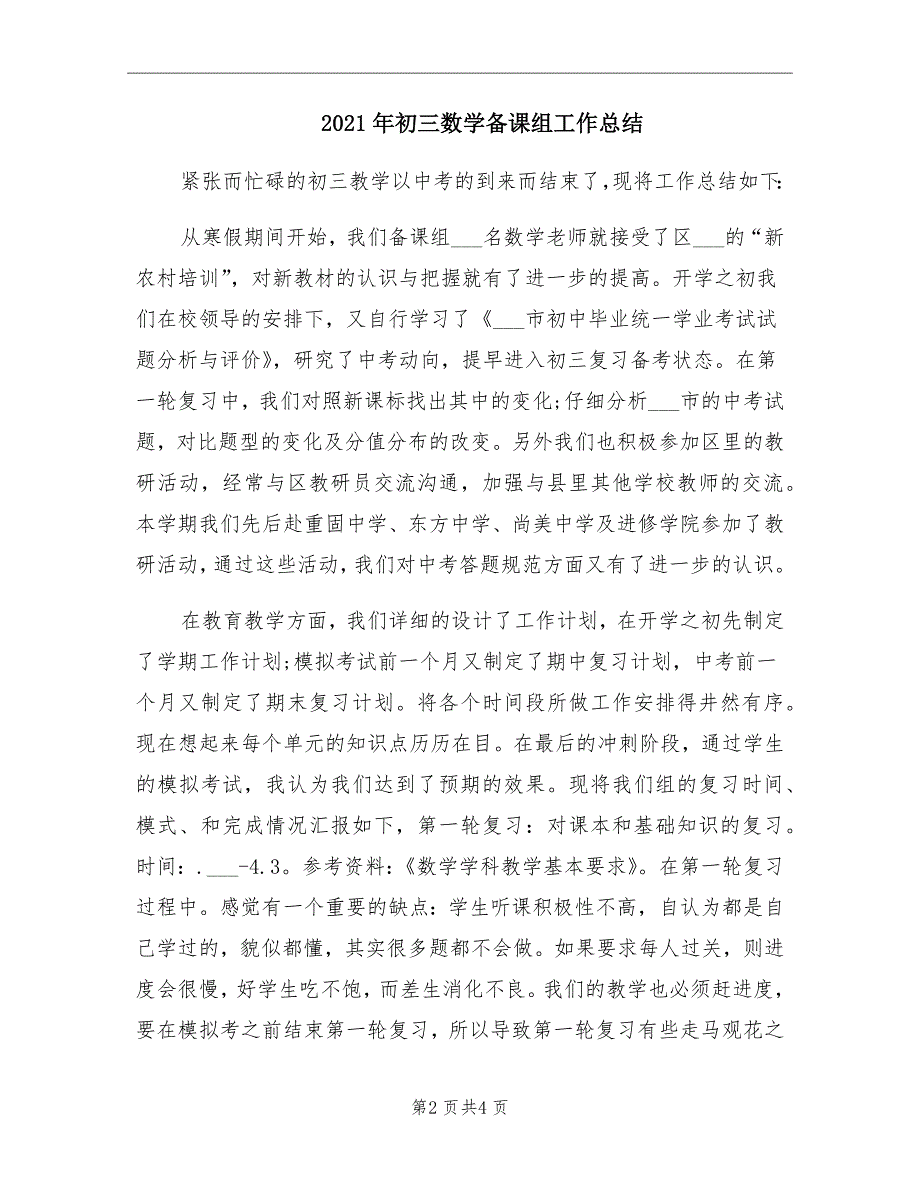 2021年初三数学备课组工作总结
紧张而忙碌的初三教学以中考的到来而结束了,现将工作总结如下:
从寒假期间开始，我们备课组___名数学老师就接受了区___的“新
农村培训”，对新教材的认识与把握就有了进一步的提高。开学之初我
们在校领导的安排下，又自行学习了《___市初中毕业统一学业考试试
题分析与评价》，研究了中考动向，提早进入初三复习备考状态。在第
一轮复习中，我们对照新课标找出其中的变化;仔细分析___市的中考试
题，对比题型的变化及分值分布的改变。另外我们也积极参加区里的教
研活动，经常与区教研员交流沟通，加强与县里其他学校教师的交流。
本学期我们先后赴重固中学、东方中学、尚美中学及进修学院参加了教
研活动，通过这些活动，我们对中考答题规范方面又有了进一步的认识。
在教育教学方面，我们详细的设计了工作计划，在开学之初先制定
了学期工作计划;模拟考试前一个月又制定了期中复习计划，中考前一
个月又制定了期末复习计划。将各个时间段所做工作安排得井然有序。
现在想起来每个单元的知识点历历在目。在最后的冲刺阶段，通过学生
的模拟考试，我认为我们达到了预期的效果。现将我们组的复习时间、
模式、和完成情况汇报如下，第一轮复习：对课本和基础知识的复习。
时间：.___-4.3。参考资料：《数学学科教学基本要求》。在第一轮复习
过程中。感觉有一个重要的缺点：学生听课积极性不高，自认为都是自
己学过的，貌似都懂，其实很多题都不会做。如果要求每人过关，则进
度会很慢，好学生吃不饱，而差生消化不良。我们的教学也必须赶进度，
要在模拟考之前结束第一轮复习，所以导致第一轮复习有些走马观花之
第2 页共4 页